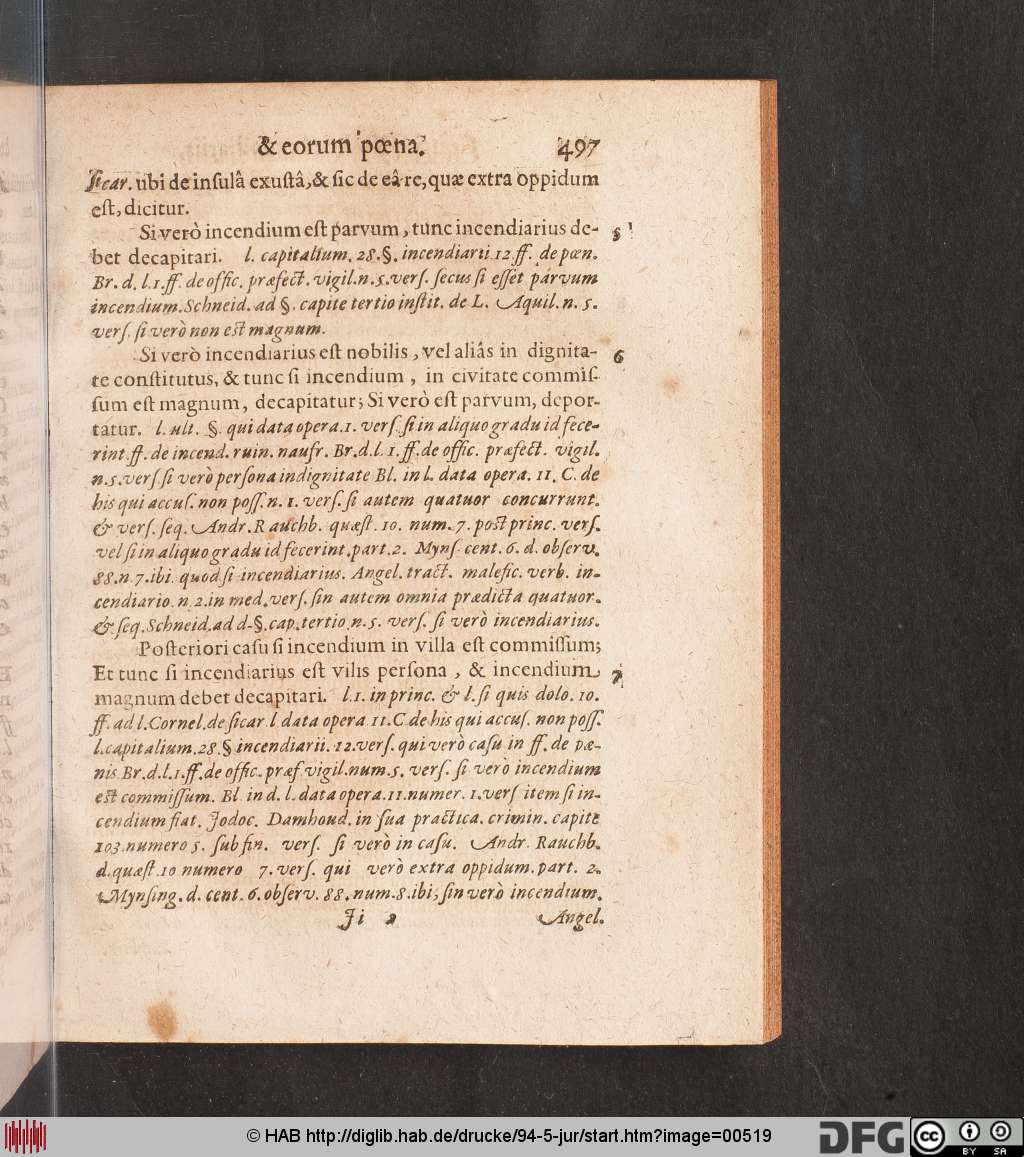 & eorum pœna. 497
ſicar. ubi de inſulâ exuſtâ, & ſic de eâ re, quæ extra oppidum
eſt, dicitur.
Si verò incendium eſt parvum, tunc incendiarius de- 5
bet decapitari. l. capitalium. 28. §. incendiarii. 12. ff. de pœn.
Br. d. l. 1. ff. de offic. præfect. vigil. n. 5. verſ. ſecus ſi eſſet parvum
incendium. Schneid. ad §. capite tertio inſtit. de L. Aquil. n. 5.
verſ. ſi verò non eſt magnum.
Si verò incendiarius eſt nobilis, vel aliâs in dignita- 6
te conſtitutus, & tunc ſi incendium, in civitate commiſ-
ſum eſt magnum, decapitatur; Si verò eſt parvum, depor-
tatur. l. ult. §. qui data opera. 1. verſ. ſi in aliquo gradu id fece-
rint. ff. de incend. ruin. naufr. Br. d. l. 1. ff. de offic. præfect. vigil.
n. 5. verſ. ſi verò perſona in dignitate Bl. in l. data opera. 11. C. de
his qui accuſ. non poſſ. n. 1. verſ. ſi autem quatuor concurrunt.
& verſ. ſeq. Andr. Rauchb. quæſt. 10. num. 7. poſt princ. verſ.
vel ſi in aliquo gradu id fecerint. part. 2. Mynſ. cent. 6. d. obſerv.
88. n. 7. ibi quod ſi incendiarius. Angel. tract. malefic. verb. in-
cendiario. n. 2. in med. verſ. ſin autem omnia prædicta quatuor.
& ſeq. Schneid. ad d. §. cap. tertio. n. 5. verſ. ſi verò incendiarius.
Poſteriori caſu ſi incendium in villa eſt commiſſum;
Et tunc ſi incendiarius eſt vilis perſona, & incendium 7
magnum debet decapitari. l. 1. in princ. & l. ſi quis dolo. 10.
ff. ad l. Cornel. de ſicar. l data opera 11. C. de his qui accuſ. non poſſ.
l. capitalium. 28. § incendiarii. 12. verſ. qui verò caſu in ff. de pœ-
nis Br. d. l. 1. ff. de offic. præf vigil. num. 5. verſ. ſi verò incendium
eſt commiſſum. Bl in d. l. data opera. 11. numer. 1. verſ item ſi in-
cendium fiat. Jodoc. Damhoud. in ſua practica. crimin. capite
103. numero 5. ſub fin. verſ. ſi verò in caſu. Andr. Rauchb.
d. quæſt. 10 numero 7. verſ. qui verò extra oppidum. part. 2.
Mynſing. d. cent. 6. obſerv. 88. num. 8. ibi; ſin verò incendium.
Ii 2 Angel.
© HAB http://diglib.hab.de/drucke/94-5-jur/start.htm?image=00519
DFG cc BY SA